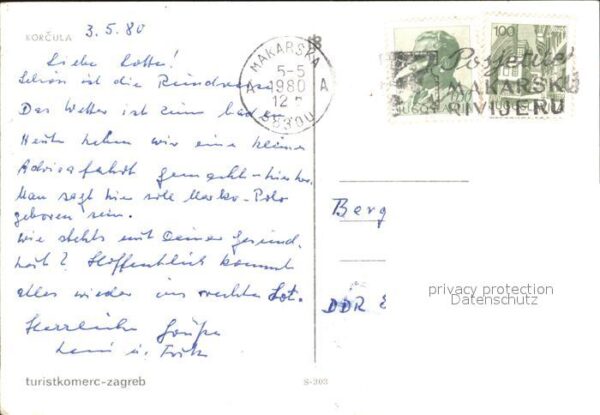 KORČULA
3.5.80
Liebe Lotte!
Schön ist die Rundreise
Das Wetter ist zum baden.
Heute haben wir eine kleine
Adriafahrt gemacht - hier
Man sagt hier soll Marko-Polo
geboren sein.
Wie stehts mit Deiner Gesund.
heit? Hoffentlich kommt
alles wieder ins rechte Lot.
Herzliche Grüße
u.
turistkomerc-zagreb
S-303
MAKARSKA
5-5
A 1980 A
12
58300
100
Posjetite
MAKARSKU
RIVIJERU
Berg
DDR
privacy protection
Datenschutz